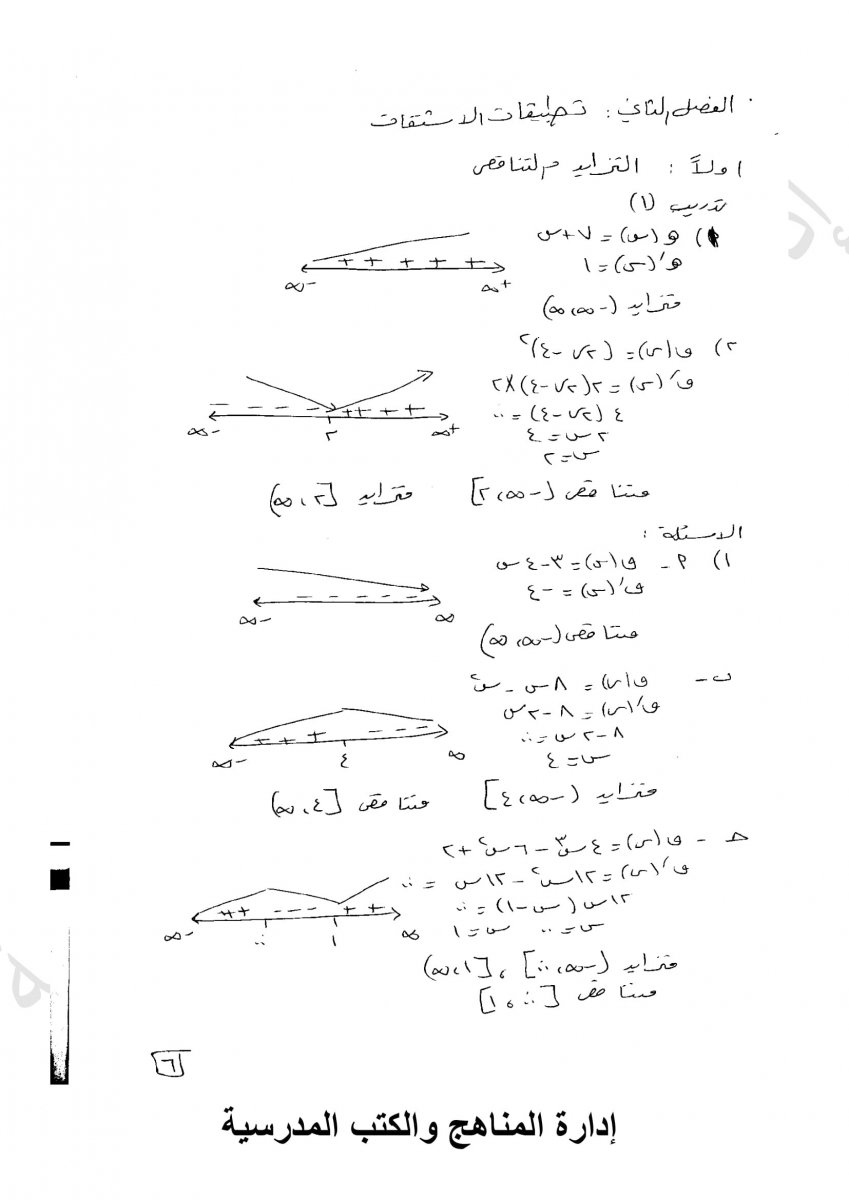 الفصل الثاني : تطبيقات الاشتقاق
اولاً : التزايد والتناقص
تدريب (١)
١) هـ(س) = ٧ + س
هـ/(س) = ١
+ + + + +
-∞ +∞
متزايد (-∞، ∞)
٢) ق(س) = (٢س - ٤)٢
ق/(س) = ٢(٢س - ٤) × ٢
٤(٢س - ٤) = ٠
٢س = ٤
س = ٢
- - - - - + + + +
-∞ ٢ +∞
متناقص (-∞، ٢] متزايد [٢، ∞)
الاسئلة :
١) ٩ - ق(س) = ٣ - ٤س
ق/(س) = -٤
- - - - - -
-∞ ∞
متناقص (-∞، ∞)
ب - ق(س) = ٨س - س٢
ق/(س) = ٨ - ٢س
٨ - ٢س = ٠
س = ٤
+ + + - - - -
-∞ ٤ ∞
متزايد (-∞، ٤] متناقص [٤، ∞)
جـ - ق(س) = ٤س٣ - ٦س٢ + ٢
ق/(س) = ١٢س٢ - ١٢س = ٠
١٢س(س - ١) = ٠
س = ٠ س = ١
+ + - - - + +
-∞ ٠ ١ ∞
متزايد (-∞، ٠] ، [١، ∞)
متناقص [٠، ١]
٦
إدارة المناهج والكتب المدرسية